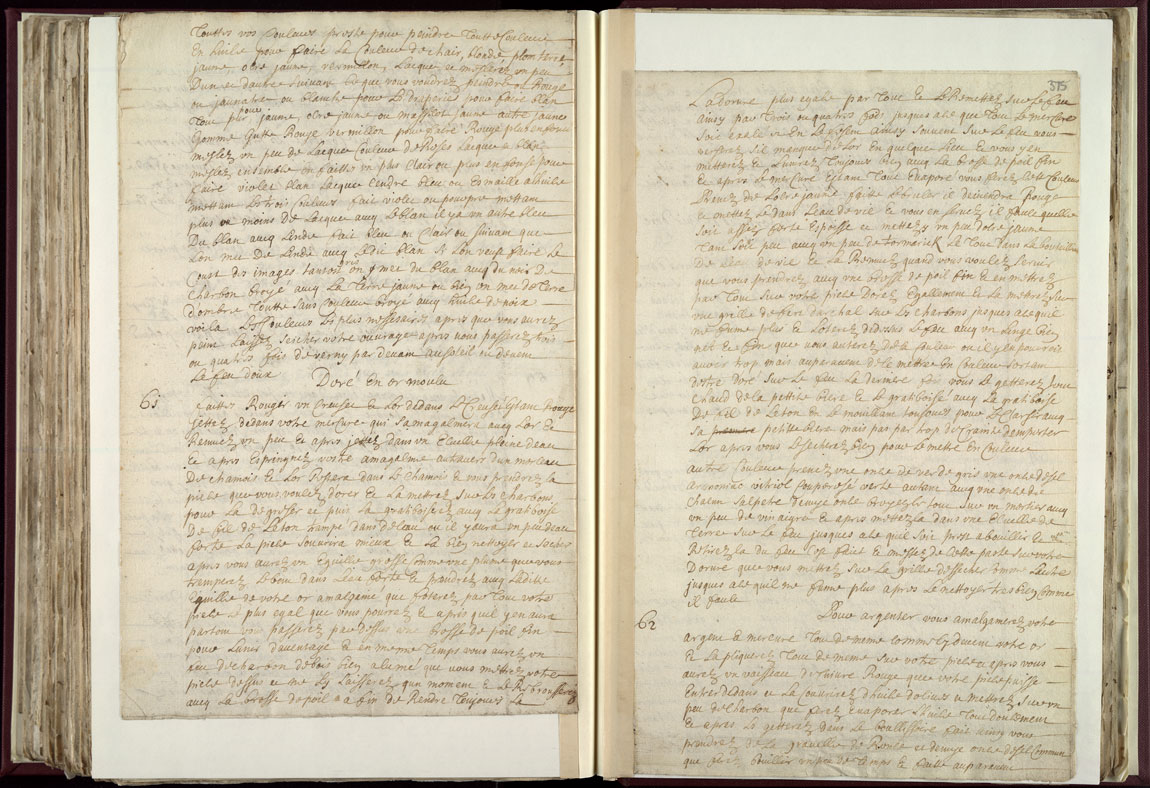 Touttes vos Couleurs preste pour peindre toutte Couleur
En huille pour faire La Couleur de chair, blan de plom terre
jaune, ocre jaune, vermillon, Lacque et meslerez un peu
D'un et dautre suivant Ce que vous voudrez peindre ou Rouge
ou jaunatre ou blanche pour Les draperies pour faire blan
Tout pur, pour jaune, ocre jaune ou massicot jaune autre jaune
Gomme Gutte Rouge vermillon pour faire Rouge plus enfoncé
meslez un peu de Lacque Couleur de Roses Lacque et blan
meslez ensemble ou faittes un plus Clair ou plus enfonse pour
faire violet blan Lacque Cendre bleu ou Esmaille a huille
mettant Les trois Couleurs fait violet ou pourpre mettant
plus ou moins de Lacque avec Le blan il y a un autre bleu
Du blan avec Linde fait bleu ou Clair ou suivant que
Lon met De Linde avec Ledit blan Si Lon veut faire Le
des images gris on met du blan avec du noir De
Charbon broyé avec La Terre jaune ou bien on met de Terre
Dombre Toutte Sans Couleur broyé avec huille de noix
voila Les Couleurs Les plus nessesaires apres que vous aurez
peint Laissez Seicher votre ouvrage apres vous passerez trois
ou quattre fois de verny par devant au soleil ou devent
Le feu doux
Doré En or moulu
61
faittes Rougir un Creuset et Lor dedans Le Creuset Estant Rouge
jettez dedans votre mercure qui Samagalmera avec Lor et
Remuez un peu et apres jettez dans un Escuelle pleine deau
et apres Espringnez votre amagelme autravers d'un morceau
De chamois et Lor Restera dans Le Chamois et vous prendrez la
piese que vous voulez dorer et La mettrez Sur Les charbons
pour La degresser et puis La gratboisez avec La gratboise
De fil de Leton trampe dans deleau ou il y aura un peu deau
forte La piese Souvrira mieux et La bien nettoyer et Secher
apres vous aurez un Eguille grosse Comme une plume que vous
tremperez Le bout dans Leau forte et prendrez avec Ledite
Eguille de votre or amalgame que froterez par Tout votre
piese Le plus egal que vous pourrez et apres quil yen aura
partout vous passerez par dessus une brosse de poil fin
pour Lunir davantage et En meme Temps vous aurez un
peu de charbon de bois bien alumé que vous mettrez votre
piese dessus et ne Ly Laisserez qun moment et Le Repousserez
avec La brosse de poil a fin de Rendre Toujours La
375
La dorure plus egale par Tout et Le Remettez Sur Le feu
ainsy par Trois ou quatres fois jusques a ce que Tout Le mercure
Soit Exalé et En La ainsy Souvent Sur Le feu vous
verrez Sil manque de Lor En quelque lieu et vous y en
mettrez et Lunirez Toujours bien avec La brosse de poil fin
et apres Le mercure Estant Tout Evaporé vous ferez Cette Couleur
Prenez de Lotre jaune faitte bruler il deviendra Rouge
et mettez Le dans Leau de vie et vous en servez il faut quelle
Soit assez forte Espesse et mettez y un peu dotre jaune
Tant Soit peu avec un peu de Le Tout dans La bouteille
De Leau de vie et La Remuez quand vous voulez servir
que vous prendrez avec une brosse de poil fin et en mettrez
par Tout Sur votre piese Dorez Egallement et La mettrez Sur
une grille de fer darchal Sur Les charbons jusques a ce quil
ne fume plus et Loterez de dessus Le feu avec un Linge bien
net et fin que vous auterez de la saleté ou il y en pourrois
avoir trop mais auparavent de le mettre En Couleur Sortant
votre doré Sur Le feu La derniere fois vous Le getterez tout
Chaud de La pettite biere et Le gratboisez avec La gratboise
De fil de Leton En Le mouillant tousjours pour Leclarsir avec
Sa petitte biere mais pas par trop de Crainte demporter
Lor apres vous Le secherez bien pour Le mettre En Couleur
autre Couleur prenez une once de verdegris une once de sel
armoniac vitriol Coupprose verte autant avec une once de
Salpetre demye once broyez Le tout Sur un mortier avec
un peu de vinaigre et apres mettez La dans une Escuelle de
Terre Sur Le feu jusques a ce quil Soit prest a bouillir et
Retirez La du feu Ce fait et mettez de Cette patte Sur votre
Dorure que vous mettrez Sur La grille desseche Comme Lautre
jusques a ce quil ne fume plus apres Le nettoyer tres bien Comme
il faut
62
Pour argenter vous amalgamerez votre
argent et mercure Tout de meme Comme Cy devent votre or
et La pliquerez Tout de meme Sur votre piese et apres vous
aurez un vaisseau de Cuivre Rouge que votre piese puisse
Entrer dedans et La Couvrirez dhuile dolives et mettrez Sur un
peu de charbon que ferez Evaporer Lhuile Tout doucement
et apres Le getterez dans Le fait ainsy vous
prendrez de La gravelle de et demye once de sel Commun
que ferez bouillir un peu de Temps et faitte auparavent